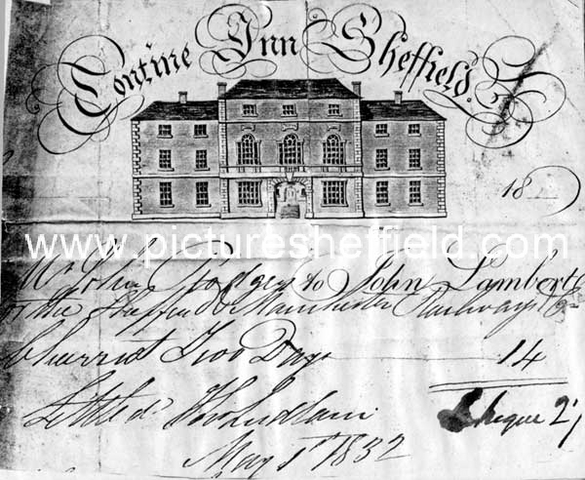 Tontine Inn Sheffield.
18
www.picturesheffield.com
Mr John to John Lambert
the Sheffield & Manchester Railways Co
Charriot Two Days 14
Settled
Cheque 2/
May 1st 1832